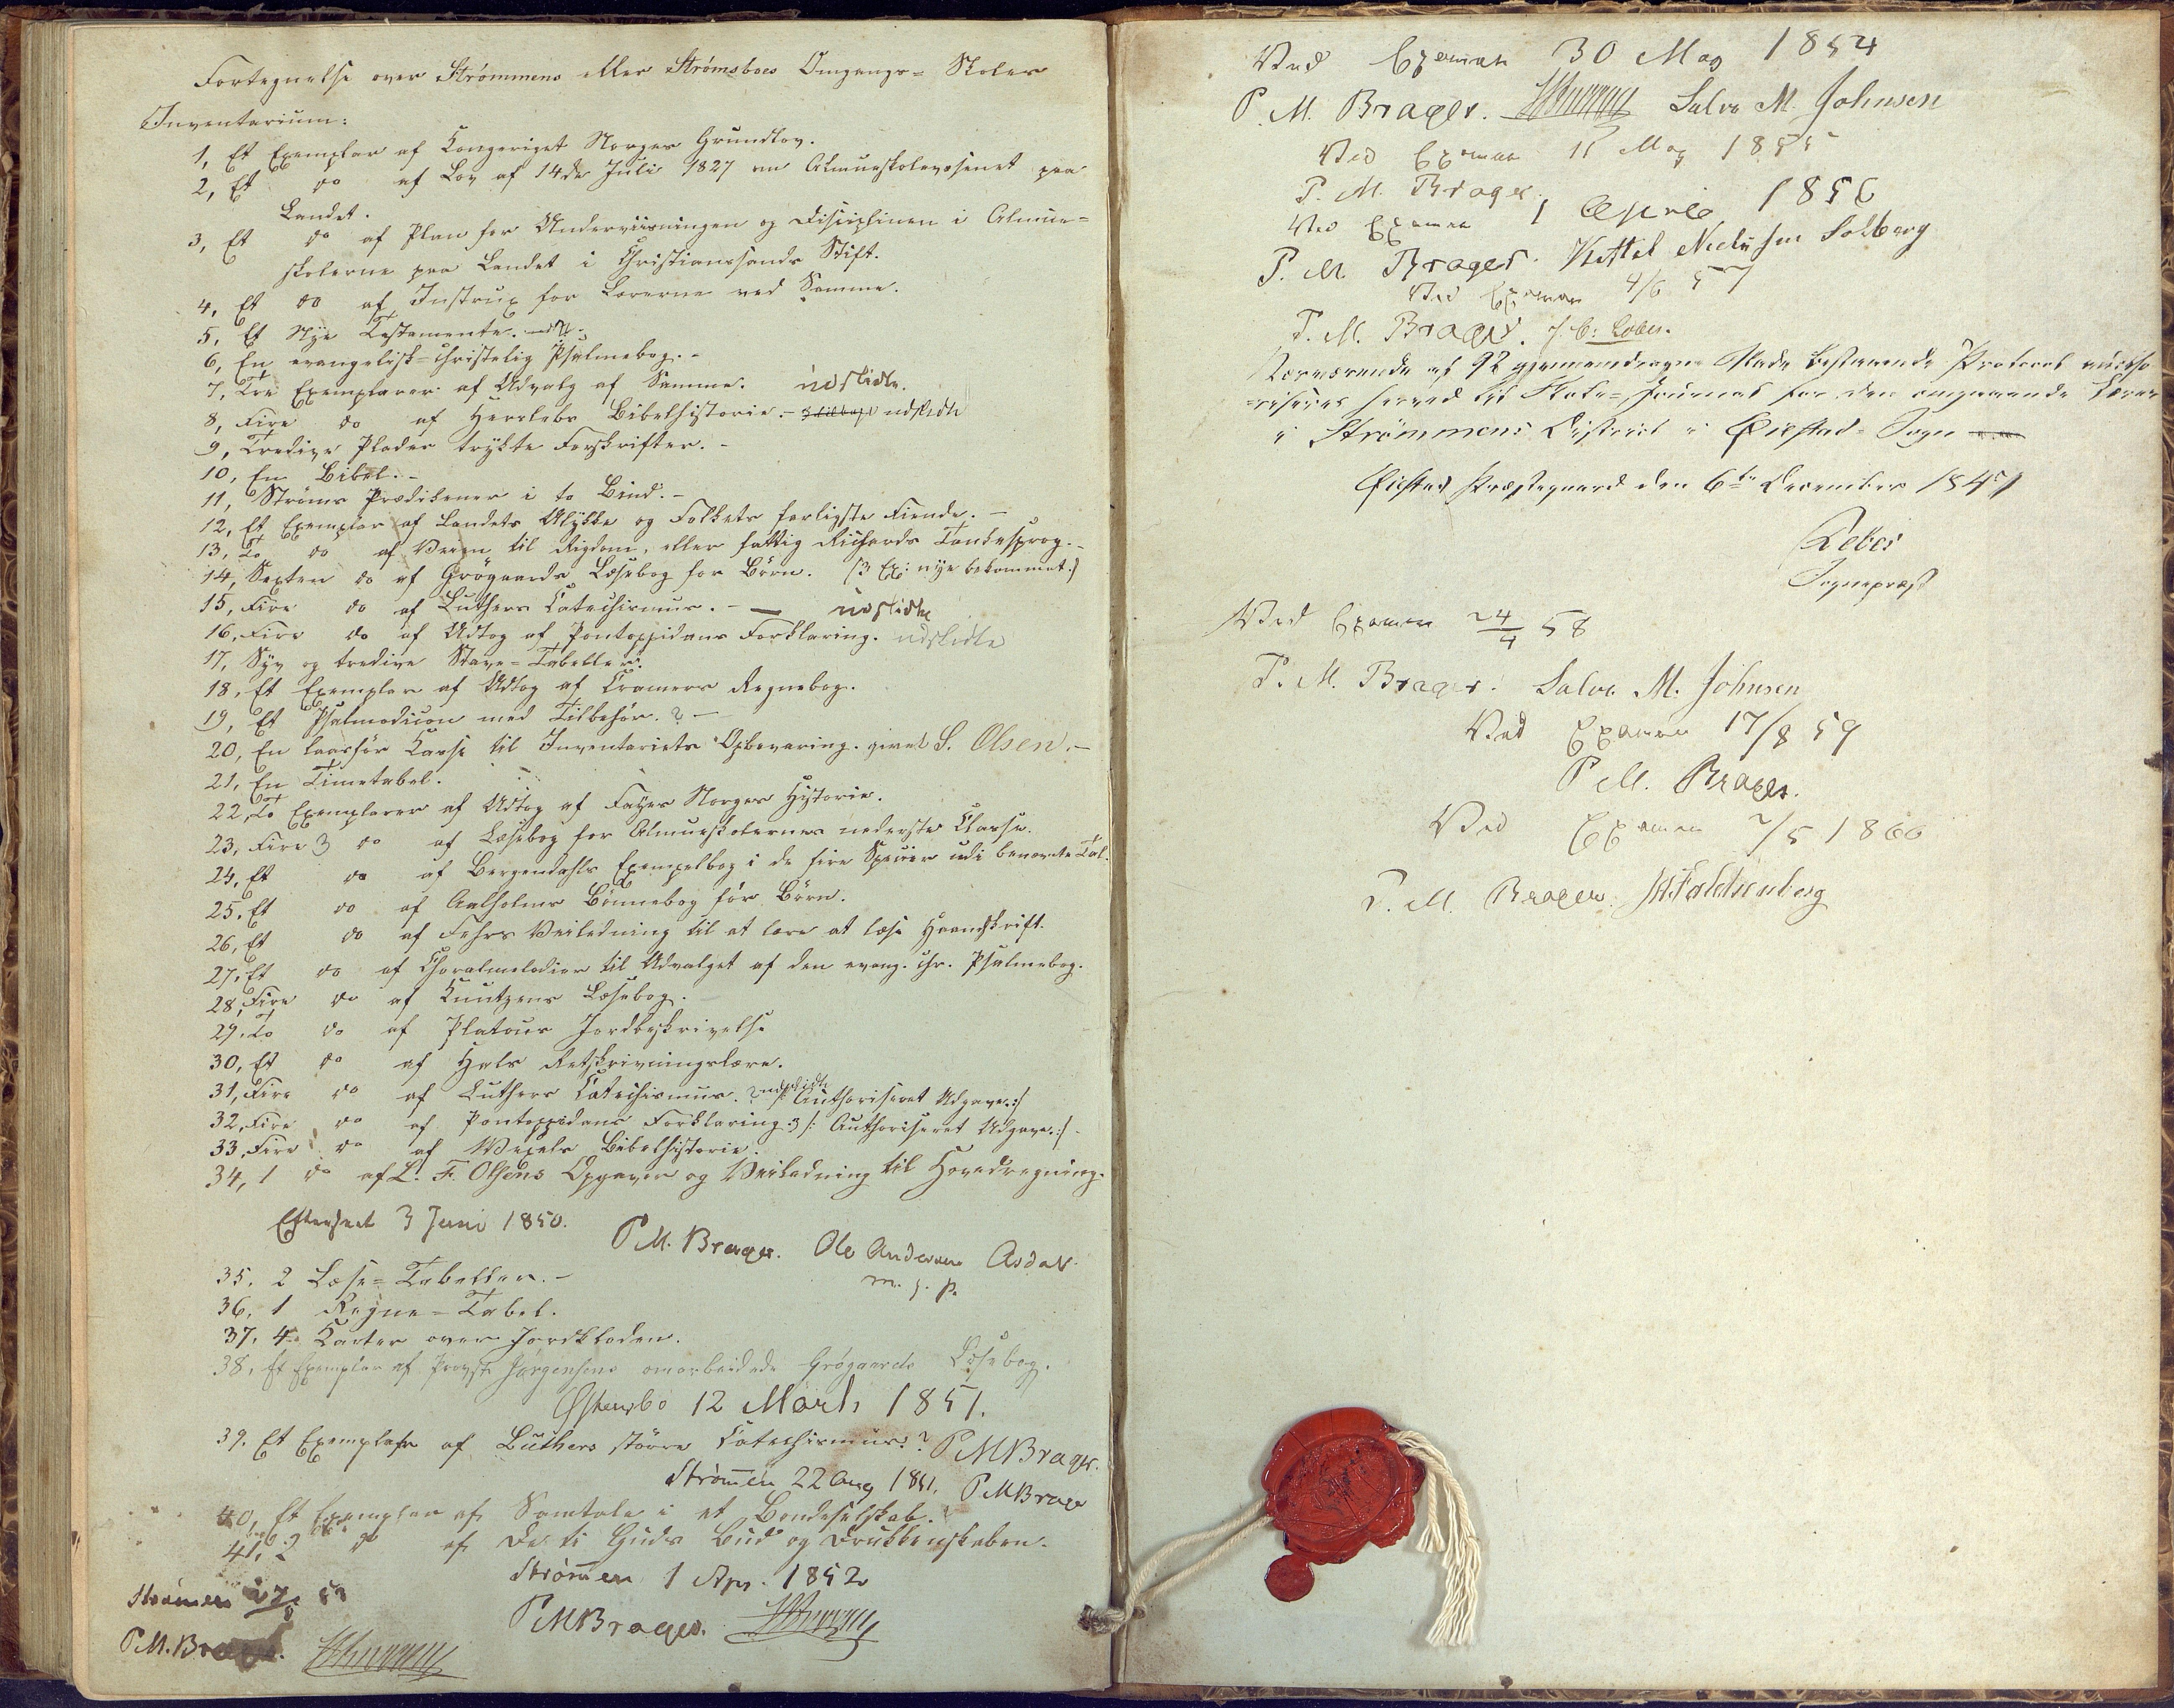 Fortegnelse over Strømmens eller Strømsboes Omgangs- Skoles
Inventarium:
1, Et Exemplar af Kongeriget Norges Grundlov.
2, Et do af Lov af 14de Juli 1827 om Almueskolevæsenet paa
Landet.
3, Et do af Plan for Underviisningen og Disciplinen i Almue-
skolerne paa Landet i Christianssands Stift.
4, Et do af Instrux for Lærerne ved Samme.
5, Et Nye Testamente.
6, En evangelisk-christelig Psalmebog. -
7, Tre Exemplarer af Udvalg af Samme. udslidte.
8, Fire do af Herslebs Bibelhistorie. - udslidte
9, Tredive Plader trykte Forskrifter. -
10, En Bibel. -
11, Strøms Prædikener i to Bind. -
12, Et Exemplar af Landets Ulykke og Folkets farligste Fiende. -
13, To do af Veien til Rigdom, eller fattig Richards Tankesprog. -
14, Sexten do af Grøgaards Læsebog for Børn. (3 Ex: nye bekommet:)
15, Fire do af Luthers Catechismus. - — udslidte
16, Fire do af Udtog af Pontoppidans Forklaring. udslidte
17, Syv og tredive Stave-Tabeller.
18, Et Exemplar af Udtog af Cramers Regnebog.
19, Et Psalmodicon med Tilbehør. ? -
20, En laasfør Kasse til Inventariets Opbevaring. givet S. Olsen. -
21, En Timetabel.
22, To Exemplarer af Udtog af Fayes Norges Historie.
23, Fire 3 do af Læsebog for Almueskolernes nederste Classe.
24, Et do af Bergendahls Exempelbog i de fire Specier udi benævnte Tal.
25, Et do af Aalholms Bønnebog for Børn.
26, Et do af Fehrs Veiledning til at lære at læse Haandskrift.
27, Et do af Choralmelodier til Udvalget af den evang. chr. Psalmebog.
28, Fire do af Knutzens Læsebog.
29, To do af Platous Jordbeskrivelse
30, Et do af Hals Retskrivningslære.
31, Fire do af Luthers Catechismus. 2 udslidte /: Authoriseret Udgave. :/
32, Fire do af Pontoppidans Forklaring. 3 /: Authoriseret Udgave. :/ -
33, Fire do af Wexels Bibelhistorie.
34, 1 do af L. F. Olsens Opgaver og Veiledning til Hovedregning.
Efterseet 3 Juni 1850.
P. M. Brager. Ole Andersen Asdal
m. f. P.
35. 2 Læse-Tabeller. -
36. 1 Regne-Tabel.
37. 4 Karter over Jordkloden.
38, Et Exemplar af Provst Jørgensens omarbeidede Grøgaards Læsebog.
Østensbø 12 Marts 1851.
39. Et Exemplar af Luthers større Catechismus. ? P M Brager.
Strømen 22 Aug 1851. P M Brager
40, Et Exemplar af Samtale i et Bondeselskab.
41, 2 do af De ti Guds Bud og Drukkenskaben.
Strømen 1 Apr. 1852
P M Brager.
Strømen
P. M. Brager.
Ved Examen 30 May 1854
P. M. Brager. Salve M. Johnsen
Ved Examen 11 May 1855
P. M. Brager.
Ved Examen 1 April 1856
P. M. Brager. Kittel Nielsen Solberg
Ved Examen 4/6 57
P. M. Brager.
Nærværende af 92 gjennemdragne Blade bestaaende Protocol autho-
-riseres herved til Skole-Journal for den omgaaende Lærer
i Strømmens District i Øiestad-Sogn
Øiestad Præstegaard den 6te December 1841
Sognepræst
Ved Examen 24/4 58
P. M. Brager. Salve M. Johnsen
Ved Examen 17/8 59
P M. Brager.
Ved Examen 2/5 1860
P. M. Brager.